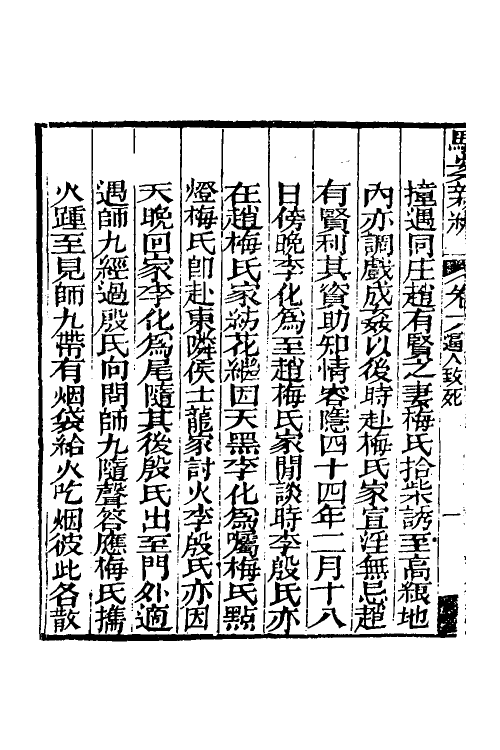 駁案新編 卷一 逼人致死 一
撞遇同庄趙有賢之妻梅氏拾柴誘至高粮地
內亦調戲成姦以後時赴梅氏家宣淫無忌趙
有賢利其資助知情容隱四十四年二月十八
日傍晚李化為至趙梅氏家閒談時李殷氏亦
在趙梅氏家紡花繼因天黑李化為囑梅氏點
燈梅氏卽赴東隣侯士龍家討火李殷氏亦因
天晚回家李化為尾隨其後殷氏出至門外適
遇師九經過殷氏向問師九隨聲答應梅氏攜
火踵至見師九帶有烟袋給火吃烟彼此各散